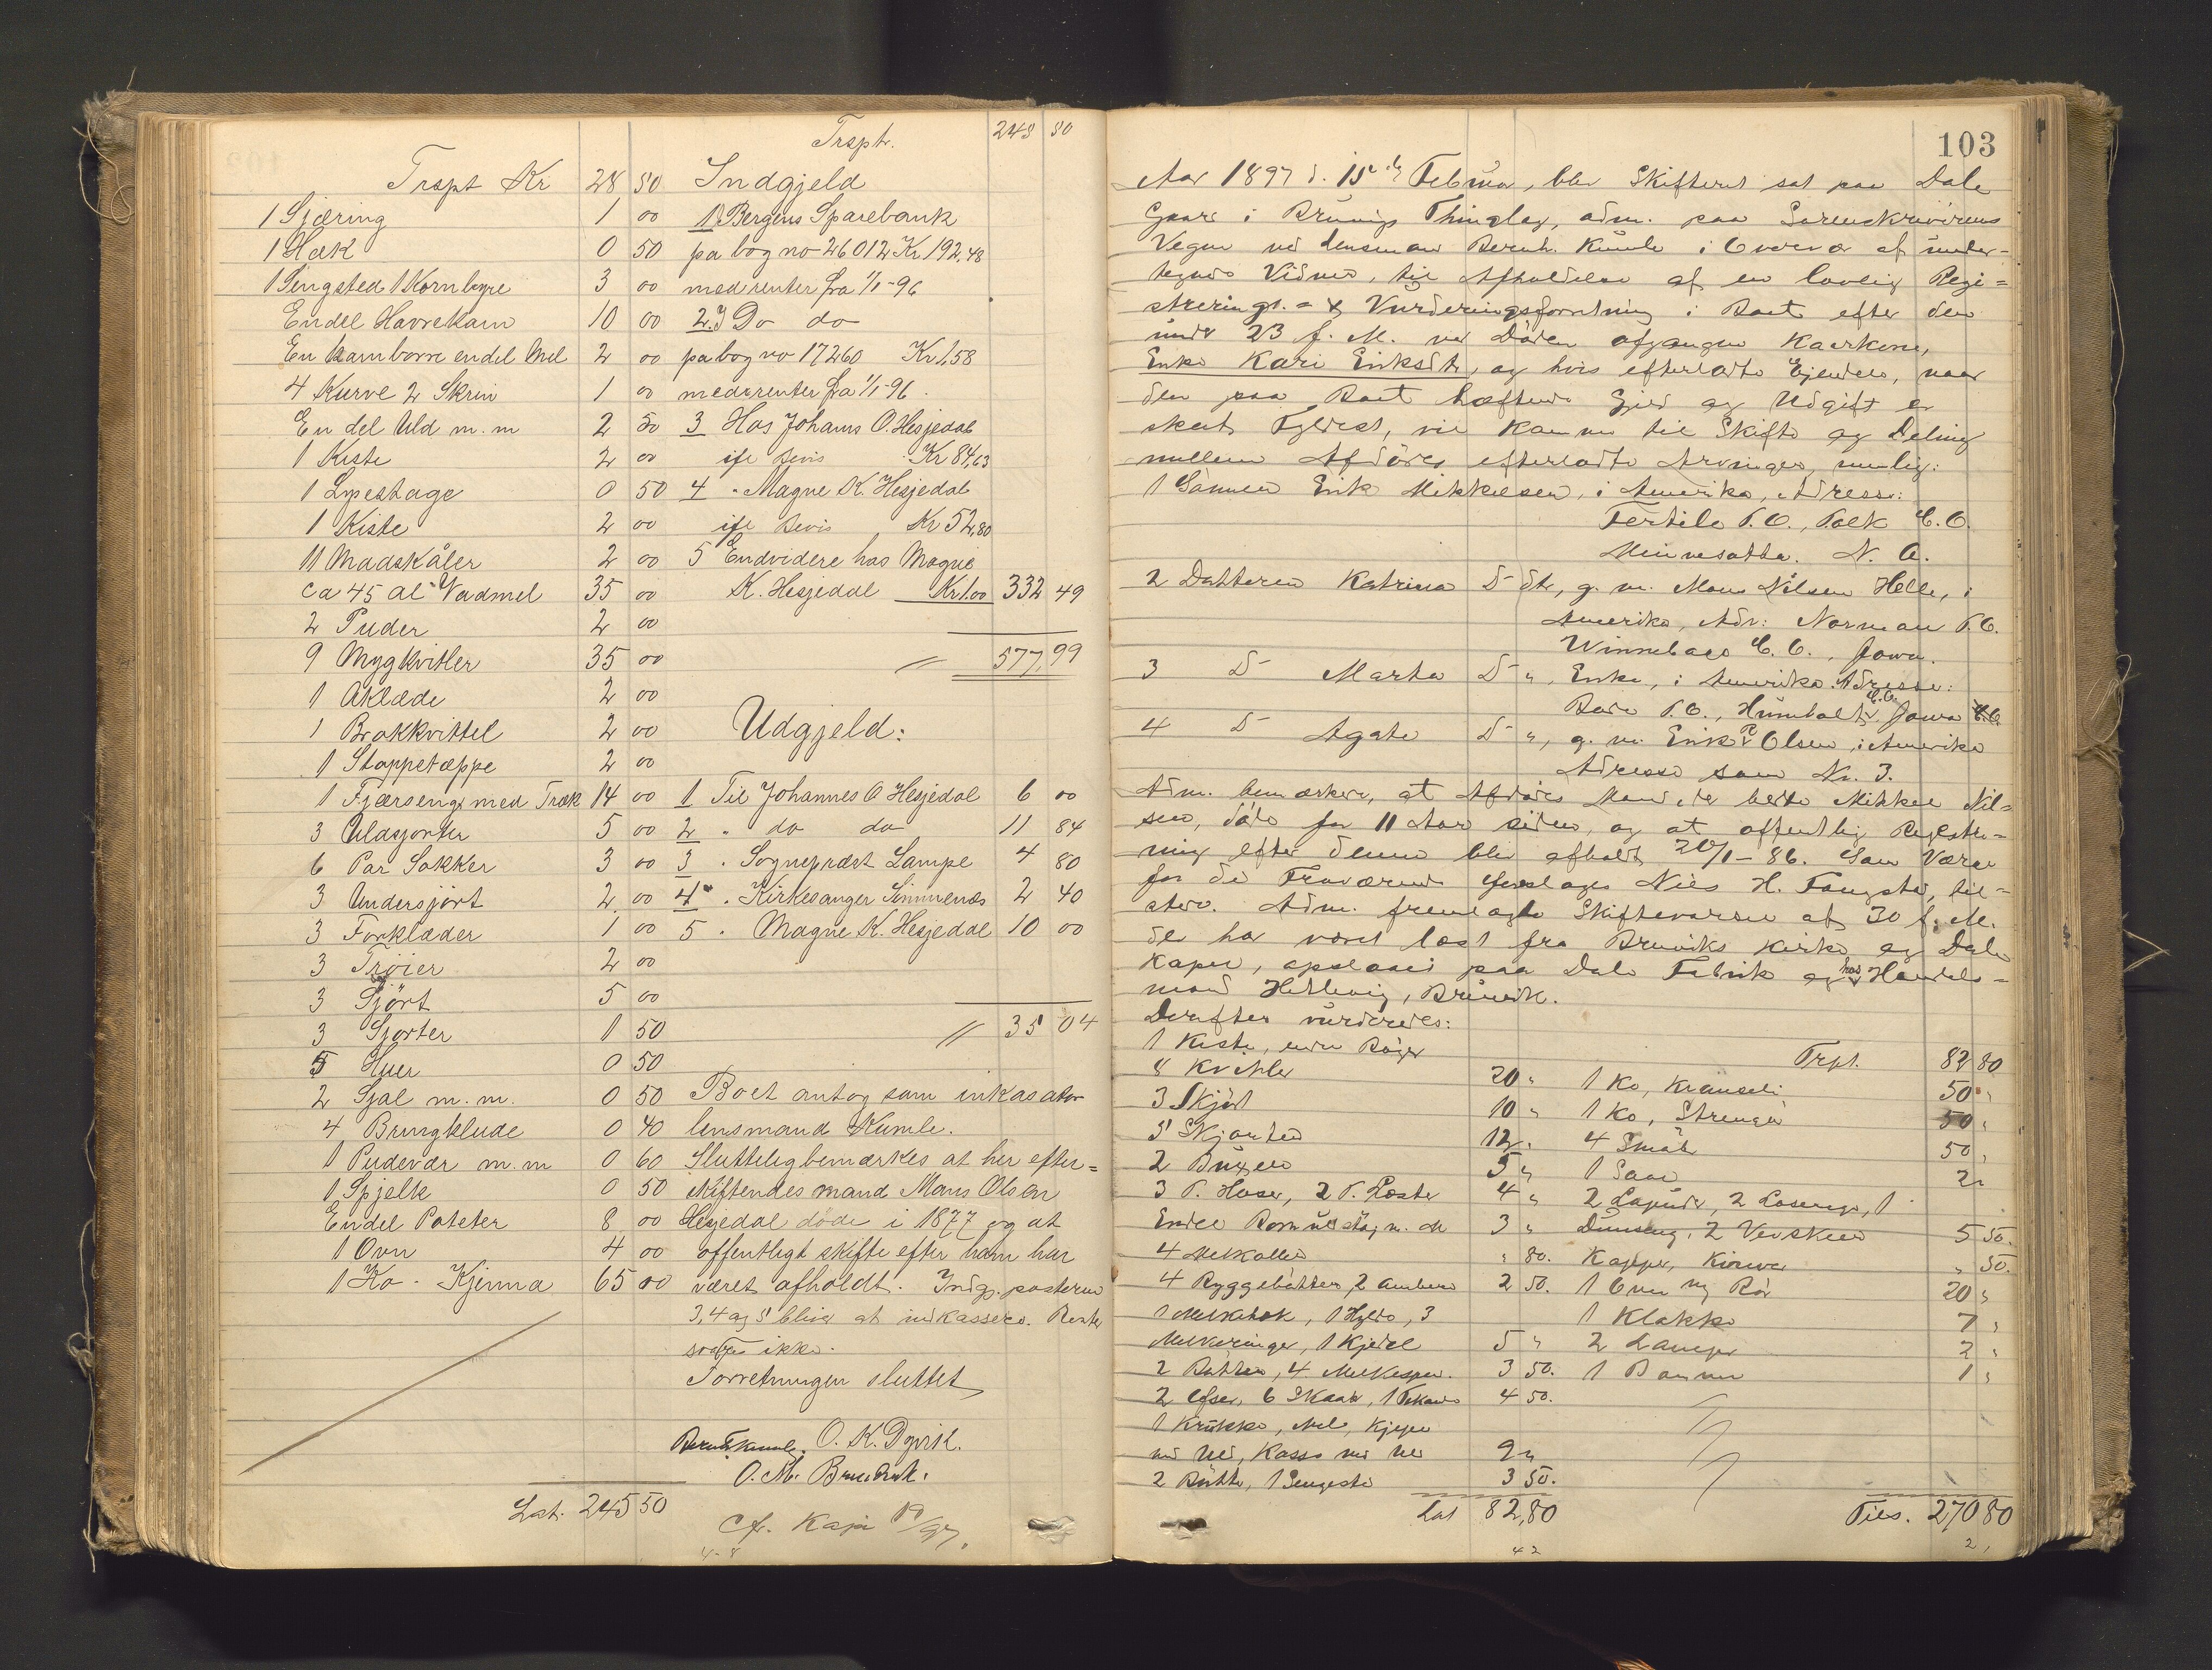 Trspt Kr 28 50
1 Sjæring 1 00
1 Hæk 0 50
1 Sengsted 1 Kornbyre 3 00
Endel Havrekarn 10 00
En kamborre endel Mel 2 00
4 Kurve 2 Skrin 1 00
En del Uld m. m 2 50
1 Kiste 2 00
1 Lysestage 0 50
1 Kiste 2 00
11 Madskåler 2 00
Ca 45 al Vadmel 35 00
2 Puder 2 00
9 Mygkvitler 35 00
1 Aklæde 2 00
1 Brakkvittel 2 00
1 Stoppetæppe 2 00
1 Fjærseng med Træk 14 00
3 Uldsjorter 5 00
6 Par Sokker 3 00
3 Undersjørt 2 00
3 Forklæder 1 00
3 Trøier 2 00
3 Sjört 5 00
3 Sjorter 1 50
5 Huer 0 50
2 Sjal m. m. 0 50
4 Bringklude 0 40
1 Pudevær m. m 0 60
1 Spjelk 0 50
Endel Poteter 8 00
1 Ovn 4 00
1 Ko - Kjinna 65 00
Lat. 245 50
Trsptr. 245 50
Indgjeld
1) Bergens Sparebank
pa bog no 26012 Kr 192,48
med renter fra 1/1-96
2) Do do
pa bog no 17260 Kr 1,58
med renter fra 1/1-96.
3 Hos Johanns O. Hesjedal
ifl bevis Kr 84,63
4 " Magne K. Hesjedal
ifl bevis Kr 52,80
5 Endvidere hos Magne
K. Hesjedal Kr 1.00 332 49
577,99
Udgjeld:
1 Til Johannes O Hesjedal 6 00
2 " do do 11 84
3 " Sogneprest Lampe 4 80
4 " Kirkesanger Simmenes 2 40
5 " Magne K. Hesjedal 10 00
35 04
Boet antog som inkasator
lensmand Kumle.
Slutteligbemærkes at her efter=
skiftendes mand Mons Olsen
Hesjedal döde i 1877 og at
offentligt skifte efter ham har
været afholdt. Indgj. posterne
3, 4 og 5 bliver at indkassere. Renter
svares ikke.
Forretningen sluttet
Bernt Kumle. O. K. Dyvik.
O. M. Bruvik.
Cfr. Kopi 19/97.
103
Aar 1897 d. 15de Februar, blev Skifteret sat paa Dale
Gaard i Bruviks Thinglag, adm. paa Sorenskriverens
Vegne ved lensmand Bernh. Kumle i Overvær af under-
tegnede Vidner, til Afholdelse af en lovlig Regi=
strerings- & Vurderingsforretning i Boet efter den
under 23 f. M. ved Döden afgangne Kaarkone,
Enke Kari Eriksdtr, og hvis efterladte Ejendele, naar
den paa Boet hæftende Gjeld og Udgift er
skeet Fyldest, vil komme til Skifte og Deling
mellem Afdödes efterladte Arvinger, nemlig:
1 Sönnen Erik Mikkelsen, i Amerika, Adresse:
Fertile P.O., Polk C.O.
Minnesotta. N. A.
2 Datteren Katrina D- dtr, g. m. Mons Nilsen Helle, i
Amerika, Adr: Norman P.O.
Winnebago C.O., Jowa.
3 D- Marta D- ", Enke, i Amerika. Adresse:
P.O., Humboldt C.O. Jowa
4 D- Agate D- ", g. m. Erik P. Olsen, i Amerika
Adresse som Nr. 3.
Adm. bemærker, at Afdödes Mand, der hedte Mikkel Nil=
sen, döde for 11 Aar siden, og at offentlig Registre=
ring efter denne blev afholdt 20/1-86. Som Værge
for de Fraværende foreslages Nils H. Fougstad, til=
stede. Adm. fremlagde Skiftevarsel af 30 f. M.
der har været læst fra Bruviks Kirke og Dale
Kapel, opslaaet paa Dale Fabrik og hos Handels=
mand Hetlevig, Bruvik.
Derefter vurderedes:
1 Kiste, endel Böger
8 Kvitler 20 "
3 Skjört 10 "
5 Skjorter 12 "
2 Buxer 5 "
3 P. Hoser, 2 P. Loster 4 "
Endel m. M 3 "
4 Melkoller " 80.
4 Ryggebötter, 2 Ambere 2 50.
1 , 1 Hylde, 3
Melkeringer, 1 Kjedel 5 "
2 Bötter, 4 Melkespan. 3 50.
2 , 6 Skaale, 4 50.
1 Krukke, Mel, Kjeper
med Uld, Kasse med Uld 9 "
2 Bötte, 1 Sengested 3 50.
Lat 82,80
Trpt. 82 80
1 Ko, 50 "
1 Ko, 50 "
4 Smaa 50 "
1 Saae 2 "
2 , 2 , 1
Dunseng, 2 5 50.
" 50.
1 Ovn og Rör 20 "
1 Klokke 7 "
2 Lamper 2 "
1 1 "
Tils. 270 80